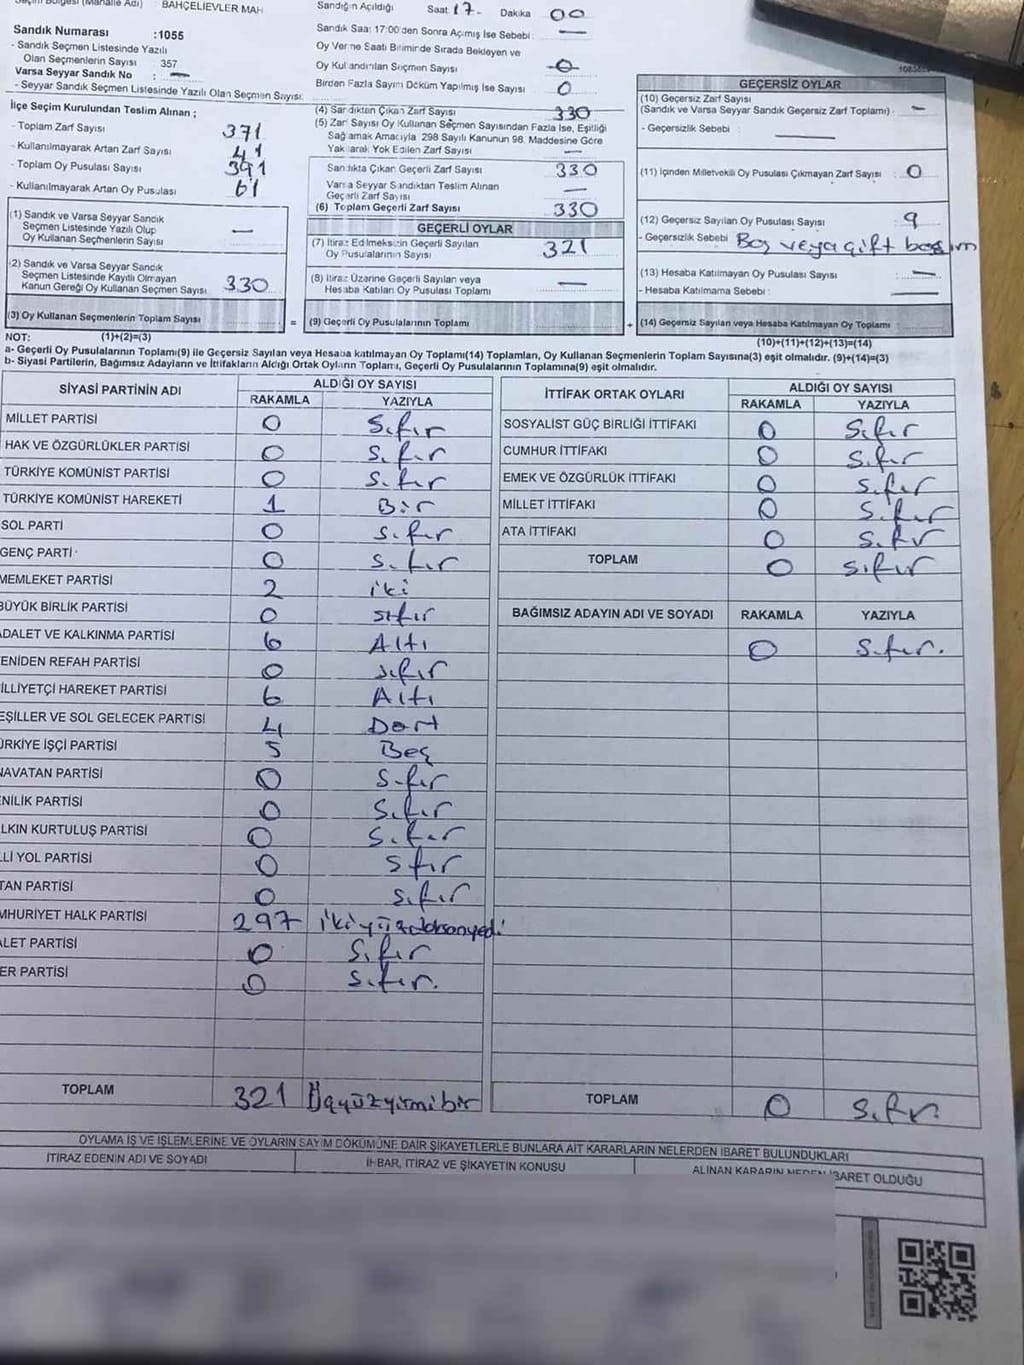 Seçim Bölgesi (Mahalle Adı) BAHÇELİEVLER MAH
Sandık Numarası :1055
- Sandık Seçmen Listesinde Yazılı
Olan Seçmenlerin Sayısı 357
Varsa Seyyar Sandık No : —
- Seyyar Sandık Seçmen Listesinde Yazılı Olan Seçmen Sayısı:
İlçe Seçim Kurulundan Teslim Alınan ;
- Toplam Zarf Sayısı 371
- Kullanılmayarak Artan Zarf Sayısı 41
- Toplam Oy Pusulası Sayısı 391
- Kullanılmayarak Artan Oy Pusulası 61
(1) Sandık ve Varsa Seyyar Sandık
Seçmen Listesinde Yazılı Olup
Oy Kullanan Seçmenlerin Sayısı —
(2) Sandık ve Varsa Seyyar Sandık
Seçmen Listesinde Kayıtlı Olmayan
Kanun Gereği Oy Kullanan Seçmen Sayısı 330
(3) Oy Kullanan Seçmenlerin Toplam Sayısı
Sandığın Açıldığı Saat 17- Dakika 00
Sandık Saat 17:00'den Sonra Açımış İse Sebebi : —
Oy Verme Saati Bitiminde Sırada Bekleyen ve
Oy Kullandırılan Seçmen Sayısı 0
Birden Fazla Sayım Döküm Yapılmış İse Sayısı 0
(4) Sandıkten Çıkan Zarf Sayısı 330
(5) Zarf Sayısı Oy Kullanan Seçmen Sayısından Fazla İse, Eşitliği
Sağlamak Amacıyla 298 Sayılı Kanunun 98. Maddesine Göre
Yakılarak Yok Edilen Zarf Sayısı —
Sandıkta Çıkan Geçerli Zarf Sayısı 330
Varsa Seyyar Sandıktan Teslim Alınan
Geçerli Zarf Sayısı —
(6) Toplam Geçerli Zarf Sayısı 330
GEÇERLİ OYLAR
(7) İtiraz Edilmeksizin Geçerli Sayılan
Oy Pusulalarının Sayısı 321
(8) İtiraz Üzerine Geçerli Sayılan veya
Hesaba Katılan Oy Pusulası Toplamı —
= (9) Geçerli Oy Pusulalarının Toplamı
GEÇERSİZ OYLAR
(10) Geçersiz Zarf Sayısı
(Sandık ve Varsa Seyyar Sandık Geçersiz Zarf Toplamı) : —
- Geçersizlik Sebebi : —
(11) İçinden Milletvekili Oy Pusulası Çıkmayan Zarf Sayısı : 0
(12) Geçersiz Sayılan Oy Pusulası Sayısı : 9
- Geçersizlik Sebebi : Boş veya çift basım
(13) Hesaba Katılmayan Oy Pusulası Sayısı : —
- Hesaba Katılmama Sebebi : —
+ (14) Geçersiz Sayılan veya Hesaba Katılmayan Oy Toplamı :
NOT: (1)+(2)=(3) (10)+(11)+(12)+(13)=(14)
a- Geçerli Oy Pusulalarının Toplamı(9) ile Geçersiz Sayılan veya Hesaba katılmayan Oy Toplamı(14) Toplamları, Oy Kullanan Seçmenlerin Toplam Sayısına(3) eşit olmalıdır. (9)+(14)=(3)
b- Siyasi Partilerin, Bağımsız Adayların ve İttifakların Aldığı Ortak Oyların Toplamı, Geçerli Oy Pusulalarının Toplamına(9) eşit olmalıdır.
SİYASİ PARTİNİN ADI ALDIĞI OY SAYISI
RAKAMLA YAZIYLA
MİLLET PARTİSİ 0 Sıfır
HAK VE ÖZGÜRLÜKLER PARTİSİ 0 Sıfır
TÜRKİYE KOMÜNİST PARTİSİ 0 Sıfır
TÜRKİYE KOMÜNİST HAREKETİ 1 Bir
SOL PARTİ 0 Sıfır
GENÇ PARTİ 0 Sıfır
MEMLEKET PARTİSİ 2 iki
BÜYÜK BİRLİK PARTİSİ 0 sıfır
ADALET VE KALKINMA PARTİSİ 6 Altı
ENİDEN REFAH PARTİSİ 0 sıfır
İLLİYETÇİ HAREKET PARTİSİ 6 Altı
EŞİLLER VE SOL GELECEK PARTİSİ 4 Dört
ÜRKİYE İŞÇİ PARTİSİ 5 Beş
NAVATAN PARTİSİ 0 Sıfır
ENİLİK PARTİSİ 0 Sıfır
LKIN KURTULUŞ PARTİSİ 0 Sıfır
LLİ YOL PARTİSİ 0 Sfır
TAN PARTİSİ 0 Sıfır
MHURİYET HALK PARTİSİ 297 ikiyüzdoksanyedi
ALET PARTİSİ 0 Sıfır
ER PARTİSİ 0 Sıfır.
TOPLAM 321 Üçyüzyirmibir
İTTİFAK ORTAK OYLARI ALDIĞI OY SAYISI
RAKAMLA YAZIYLA
SOSYALİST GÜÇ BİRLİĞİ İTTİFAKI 0 Sıfır
CUMHUR İTTİFAKI 0 Sıfır
EMEK VE ÖZGÜRLÜK İTTİFAKI 0 Sıfır
MİLLET İTTİFAKI 0 Sıfır
ATA İTTİFAKI 0 Sıfır
TOPLAM 0 Sıfır
BAĞIMSIZ ADAYIN ADI VE SOYADI RAKAMLA YAZIYLA
0 Sıfır.
TOPLAM 0 Sıfır.
OYLAMA İŞ VE İŞLEMLERİNE VE OYLARIN SAYIM DÖKÜMÜNE DAİR ŞİKAYETLERLE BUNLARA AİT KARARLARIN NELERDEN İBARET BULUNDUKLARI
İTİRAZ EDENİN ADI VE SOYADI İHBAR, İTİRAZ VE ŞİKAYETİN KONUSU ALINAN KARARIN NEDEN İBARET OLDUĞU